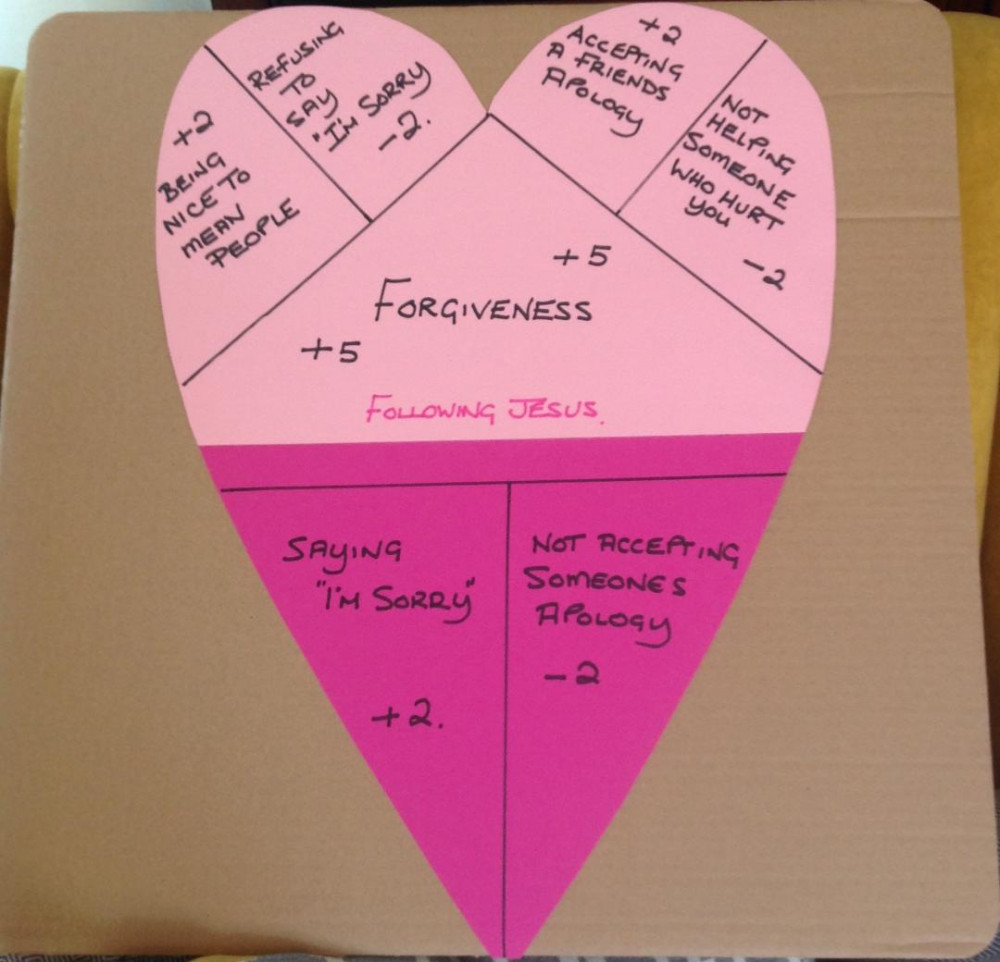 +2
BEING
NICE TO
MEAN
PEOPLE
REFUSING
TO
SAY
"I'M SORRY
-2.
+2
ACCEPTING
A FRIENDS
APOLOGY
NOT
HELPING
SOMEONE
WHO HURT
YOU
-2
+5
FORGIVENESS
+5
FOLLOWING JESUS.
SAYING
"I'M SORRY"
+2.
NOT ACCEPTING
SOMEONES
APOLOGY
-2